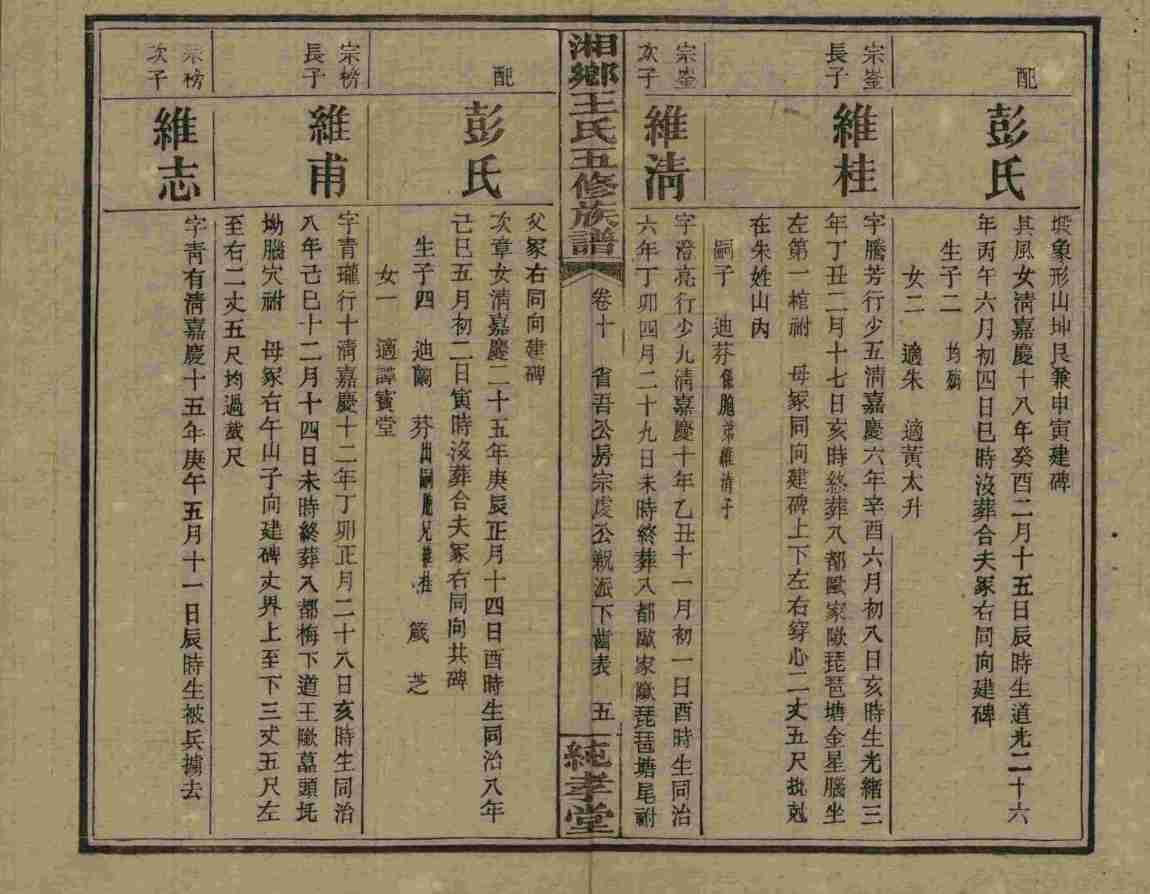 塅象形山坤艮兼申寅建碑
配
彭氏
其風女清嘉慶十八年癸酉二月十五日辰時生道光二十六
年丙午六月初四日巳時沒葬合夫冢右同向建碑
生子二 均殤
女二 適朱 適黃太升
宗崟
長子
維桂
字騰芳行少五清嘉慶六年辛酉六月初八日亥時生光緒三
年丁丑二月十七日亥時終葬八都歐家隞琵琶塘金星腦坐
左第一棺祔 母冢同向建碑上下左右穿心二丈五尺批剋
在朱姓山內
嗣子 迪芬係胞弟維清子
宗崟
次子
維清
字澄亮行少九清嘉慶十年乙丑十一月初一日酉時生同治
六年丁卯四月二十九日未時終葬入都歐家隞琵琶塘尾祔
湘鄉王氏五修族譜
卷十 省吾公房宗虔公親派下齒表 五
純孝堂
父冢右同向建碑
配
彭氏
次章女清嘉慶二十五年庚辰正月十四日酉時生同治八年
己巳五月初二日寅時沒葬合夫冢右同向共碑
生子四 迪 芬出嗣胞兄維桂 箴 芝
女一 適譚賓堂
宗榜
長子
維甫
字青瓏行十清嘉慶十二年丁卯正月二十八日亥時生同治
八年己巳十二月十四日未時終葬入都梅下道王隞墓頭坉
坳腦穴祔 母冢右午山子向建碑丈界上至下三丈五尺左
至右二丈五尺均過裁尺
宗榜
次子
維志
字青有清嘉慶十五年庚午五月十一日辰時生被兵擄去